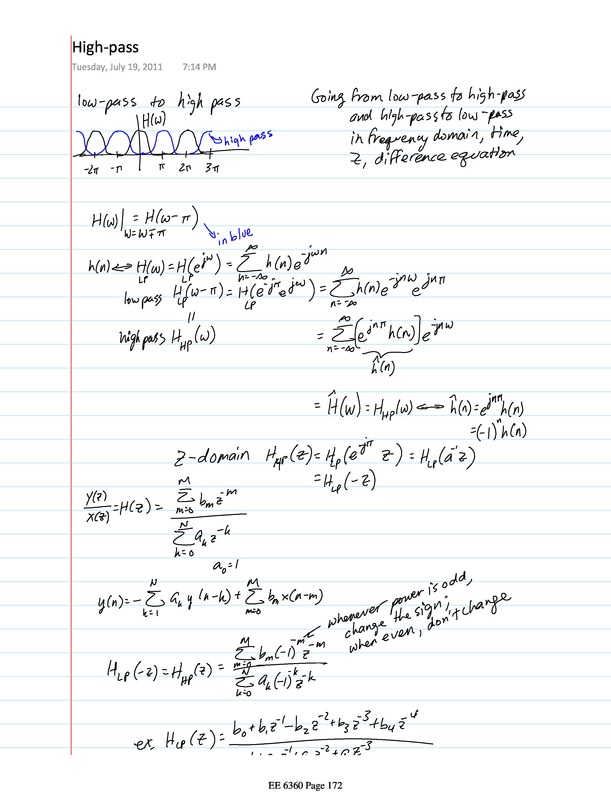 High-pass
Tuesday, July 19, 2011 7:14 PM
low-pass to high pass
H(ω)
high pass
-2π -π π 2π 3π
Going from low-pass to high-pass
and high-pass to low-pass
in frequency domain, time,
z, difference equation
H(ω)|_{ω=ω∓π} = H(ω-π)
in blue
h(n) ⟷ H_{LP}(ω) = H_{LP}(e^{jω}) = Σ_{n=-∞}^{∞} h(n)e^{-jωn}
low pass H_{LP}(ω-π) = H_{LP}(e^{-jπ}e^{jω}) = Σ_{n=-∞}^{∞} h(n)e^{-jnω} e^{jnπ}
||
high pass H_{HP}(ω)
= Σ_{n=-∞}^{∞} [e^{jnπ} h(n)] e^{-jnω}
ĥ(n)
= Ĥ(ω) = H_{HP}(ω) ⟷ ĥ(n) = e^{jnπ}h(n)
= (-1)^n h(n)
Z-domain H_{HP}(z) = H_{LP}(e^{jπ} z) = H_{LP}(a^{-1}z)
= H_{LP}(-z)
Y(z)/X(z) = H(z) = Σ_{m=0}^{M} b_m z^{-m} / Σ_{k=0}^{N} a_k z^{-k}
a_0 = 1
y(n) = -Σ_{k=1}^{N} a_k y(n-k) + Σ_{m=0}^{M} b_m x(n-m)
whenever power is odd,
change the sign;
when even, don't change
H_{LP}(-z) = H_{HP}(z) = Σ_{m=0}^{M} b_m(-1)^{-m} z^{-m} / Σ_{k=0}^{N} a_k(-1)^{-k} z^{-k}
ex H_{LP}(z) = b_0+b_1z^{-1}-b_2z^{-2}+b_3z^{-3}+b_4z^{-4}
EE 6360 Page 172